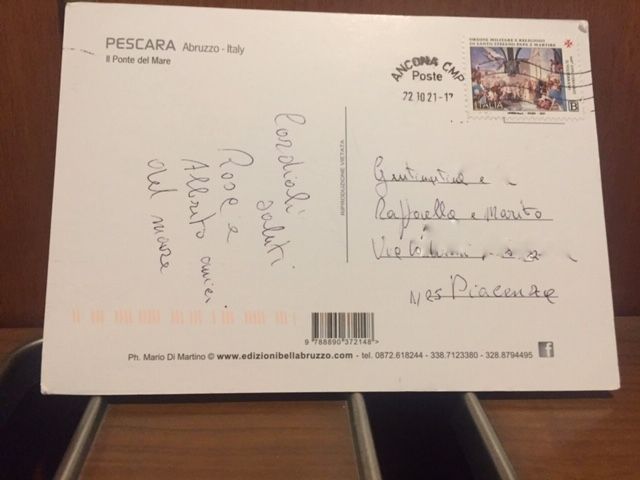 PESCARA Abruzzo - Italy
Il Ponte del Mare
ANCONA CMP
Poste
22.10.21-1
ORDINE MILITARE E RELIGIOSO
DI SANTO STEFANO PAPA E MARTIRE
ITALIA B
Cordiali
saluti
Rosa e
Alberto amici
del mare
RIPRODUZIONE VIETATA
e
Raffaella e Marito
Via
Piacenza
9 788890 372148 >
Ph. Mario Di Martino © www.edizionibellabruzzo.com - tel. 0872.618244 - 338.7123380 - 328.8794495
f